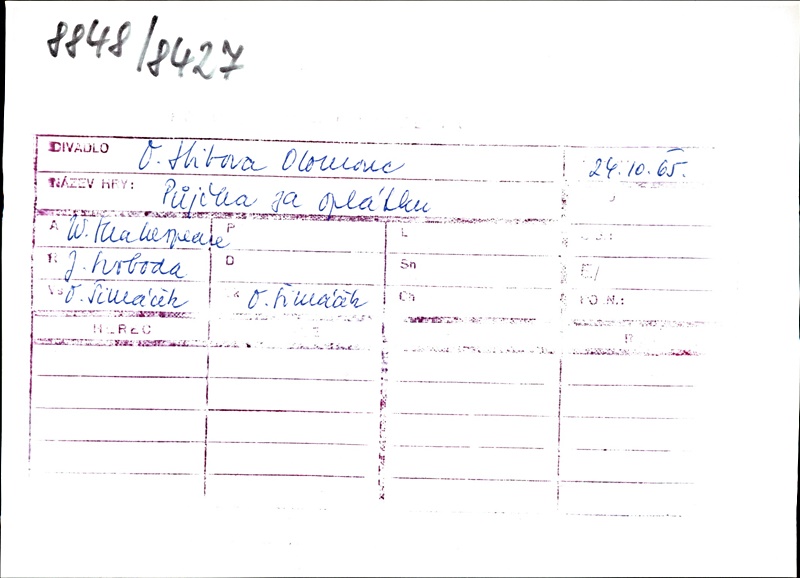 8848/8427
DIVADLO O. Stibora Olomouc 24.10.65.
NÁZEV HRY: Půjčka za oplátku
A W. Shakespeare P L
R J. Svoboda D Sn
Vs O. Šimáček K O. Šimáček Ch FO.N.:
HEREC R